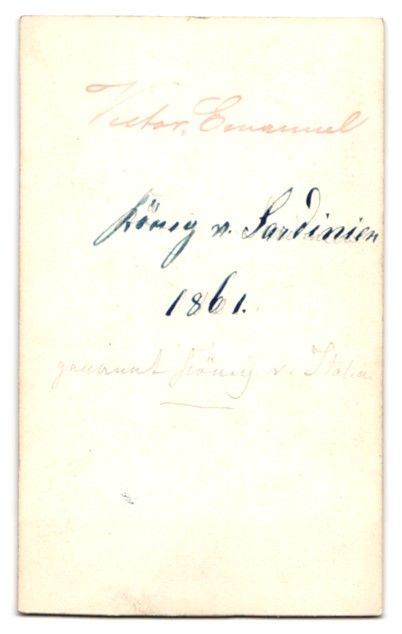 Victor Emanuel
König v. Sardinien
1861.
genannt König v. Italien